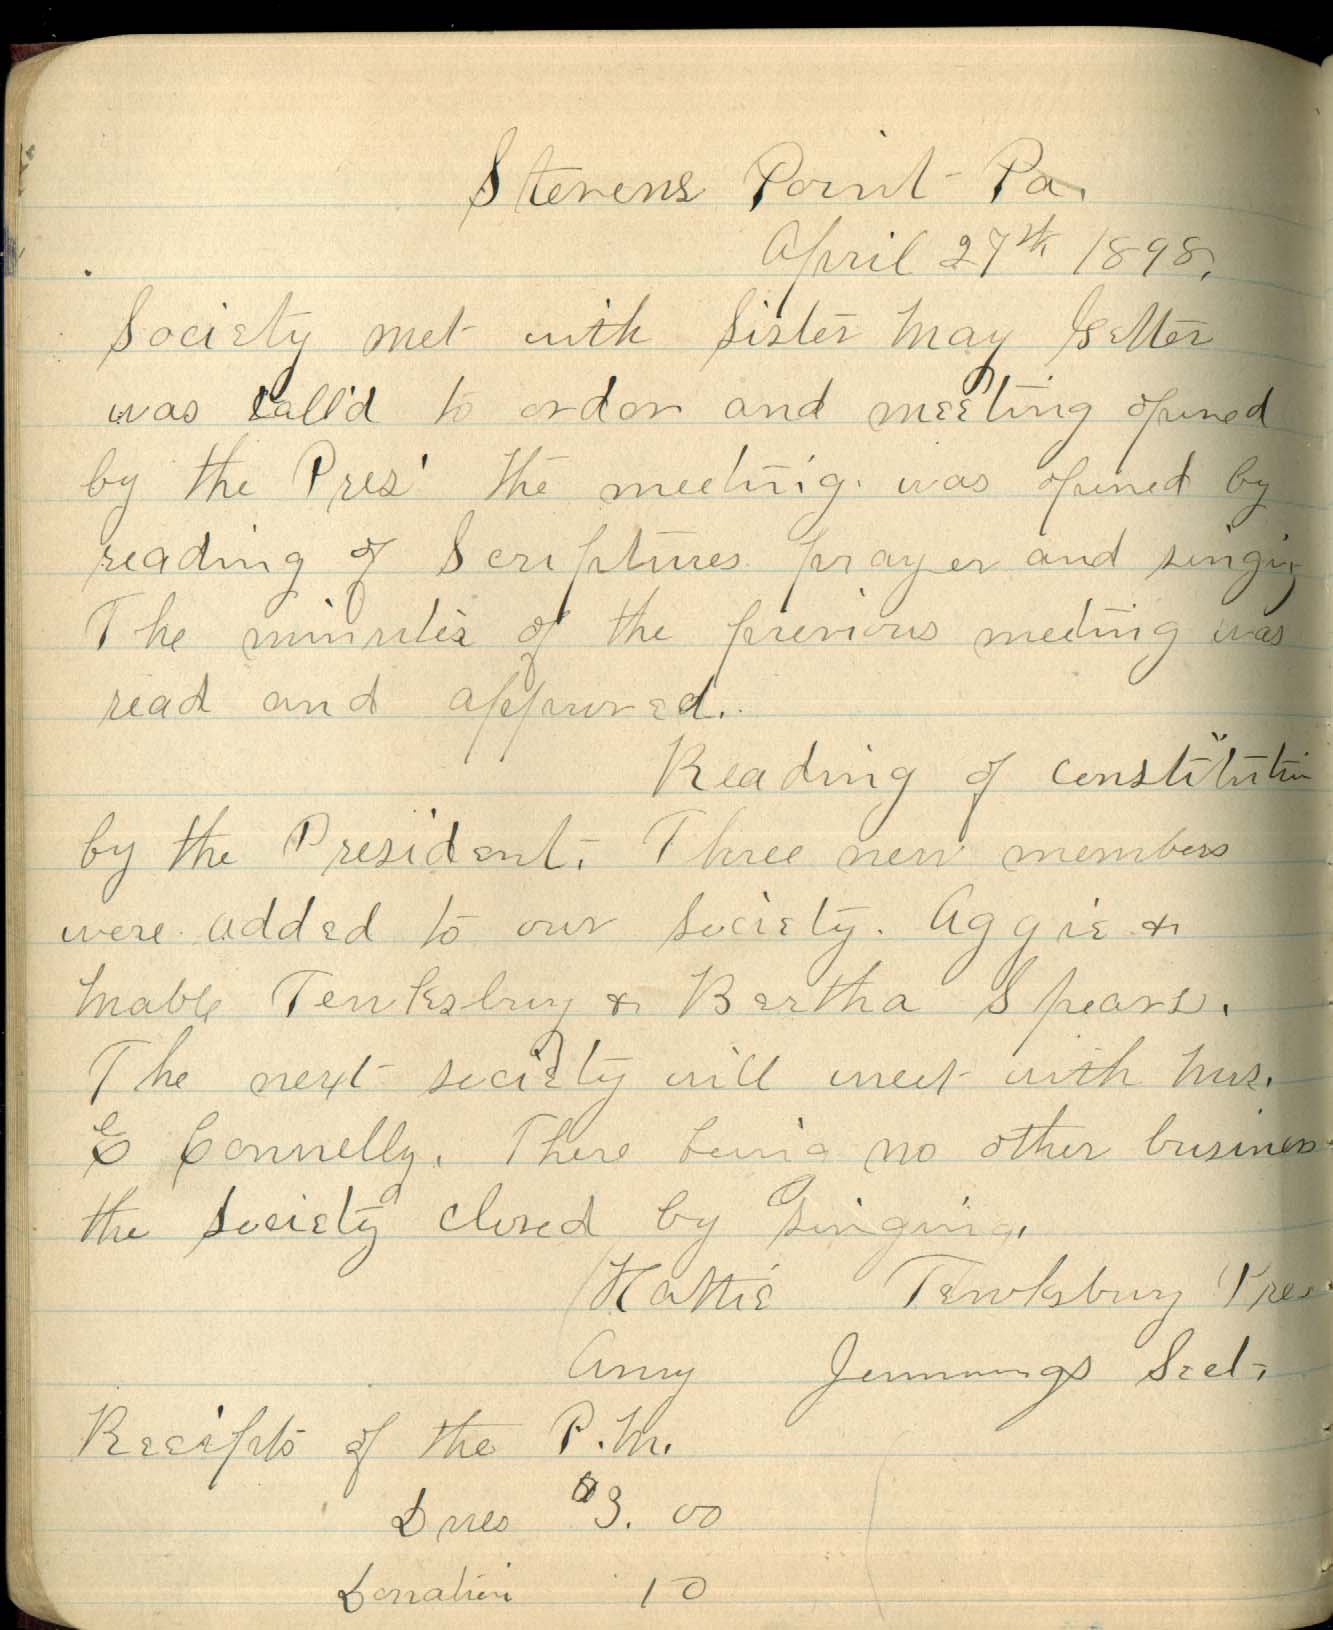 Stevens Point Pa.
April 27th 1898.
Society met with Sister May Getter
was call'd to order and meeting opened
by the Pres' the meeting. was opened by
reading of Scriptures prayer and singing
The minutes of the previous meeting was
read and approved.
Reading of constitution
by the President. Three new members
were added to our society. Aggie &
Mable Tewksbury & Bertha Spears.
The next society will meet with Mrs.
E Connelly. There being no other business
the society closed by singing.
Hattie Tewksbury Pres
Amy Jennings Sect.
Receipts of the P.M.
Dues $3.00
Donation 10